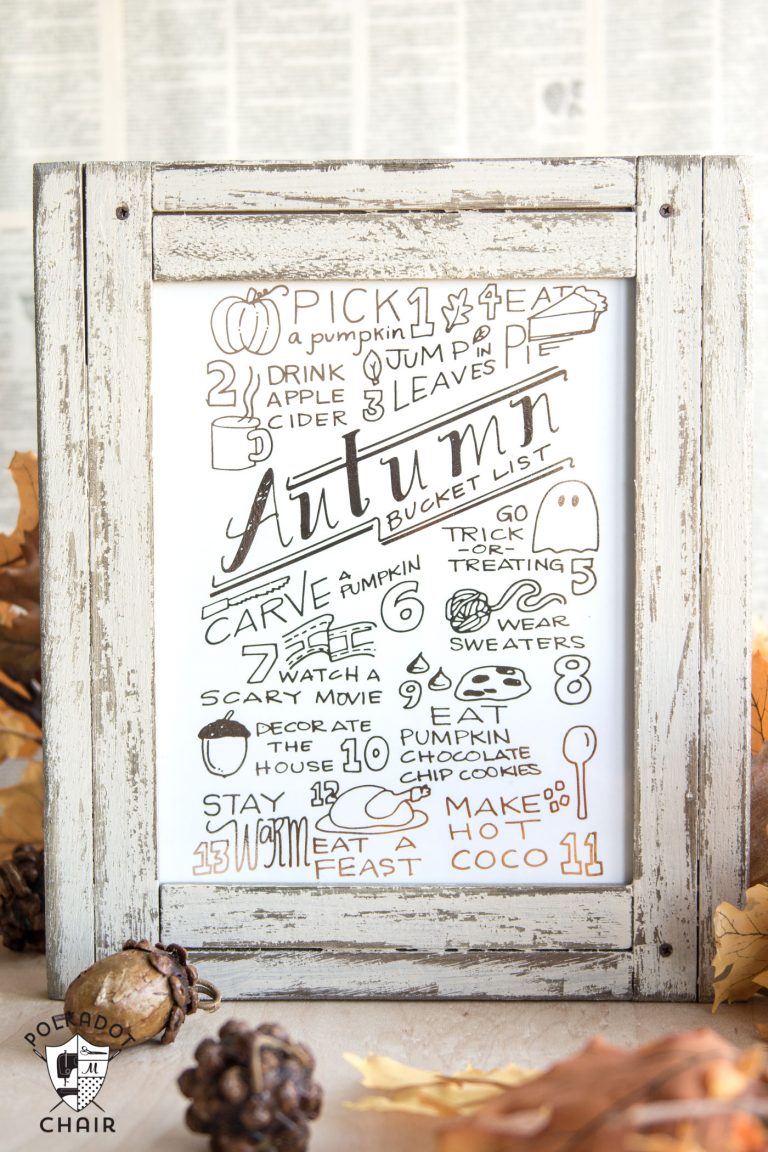 PICK 1
a pumpkin
4 EAT
PIE
2 DRINK
APPLE
CIDER
JUMP IN
3 LEAVES
Autumn
BUCKET LIST
GO
TRICK
-OR-
TREATING 5
CARVE A
PUMPKIN
6
WEAR
SWEATERS
8
7 WATCH A
SCARY MOVIE
9
EAT
PUMPKIN
CHOCOLATE
CHIP COOKIES
DECORATE
THE
HOUSE 10
STAY
13 Warm
12
EAT A
FEAST
MAKE
HOT
COCO 11
POLKADOT
M
CHAIR